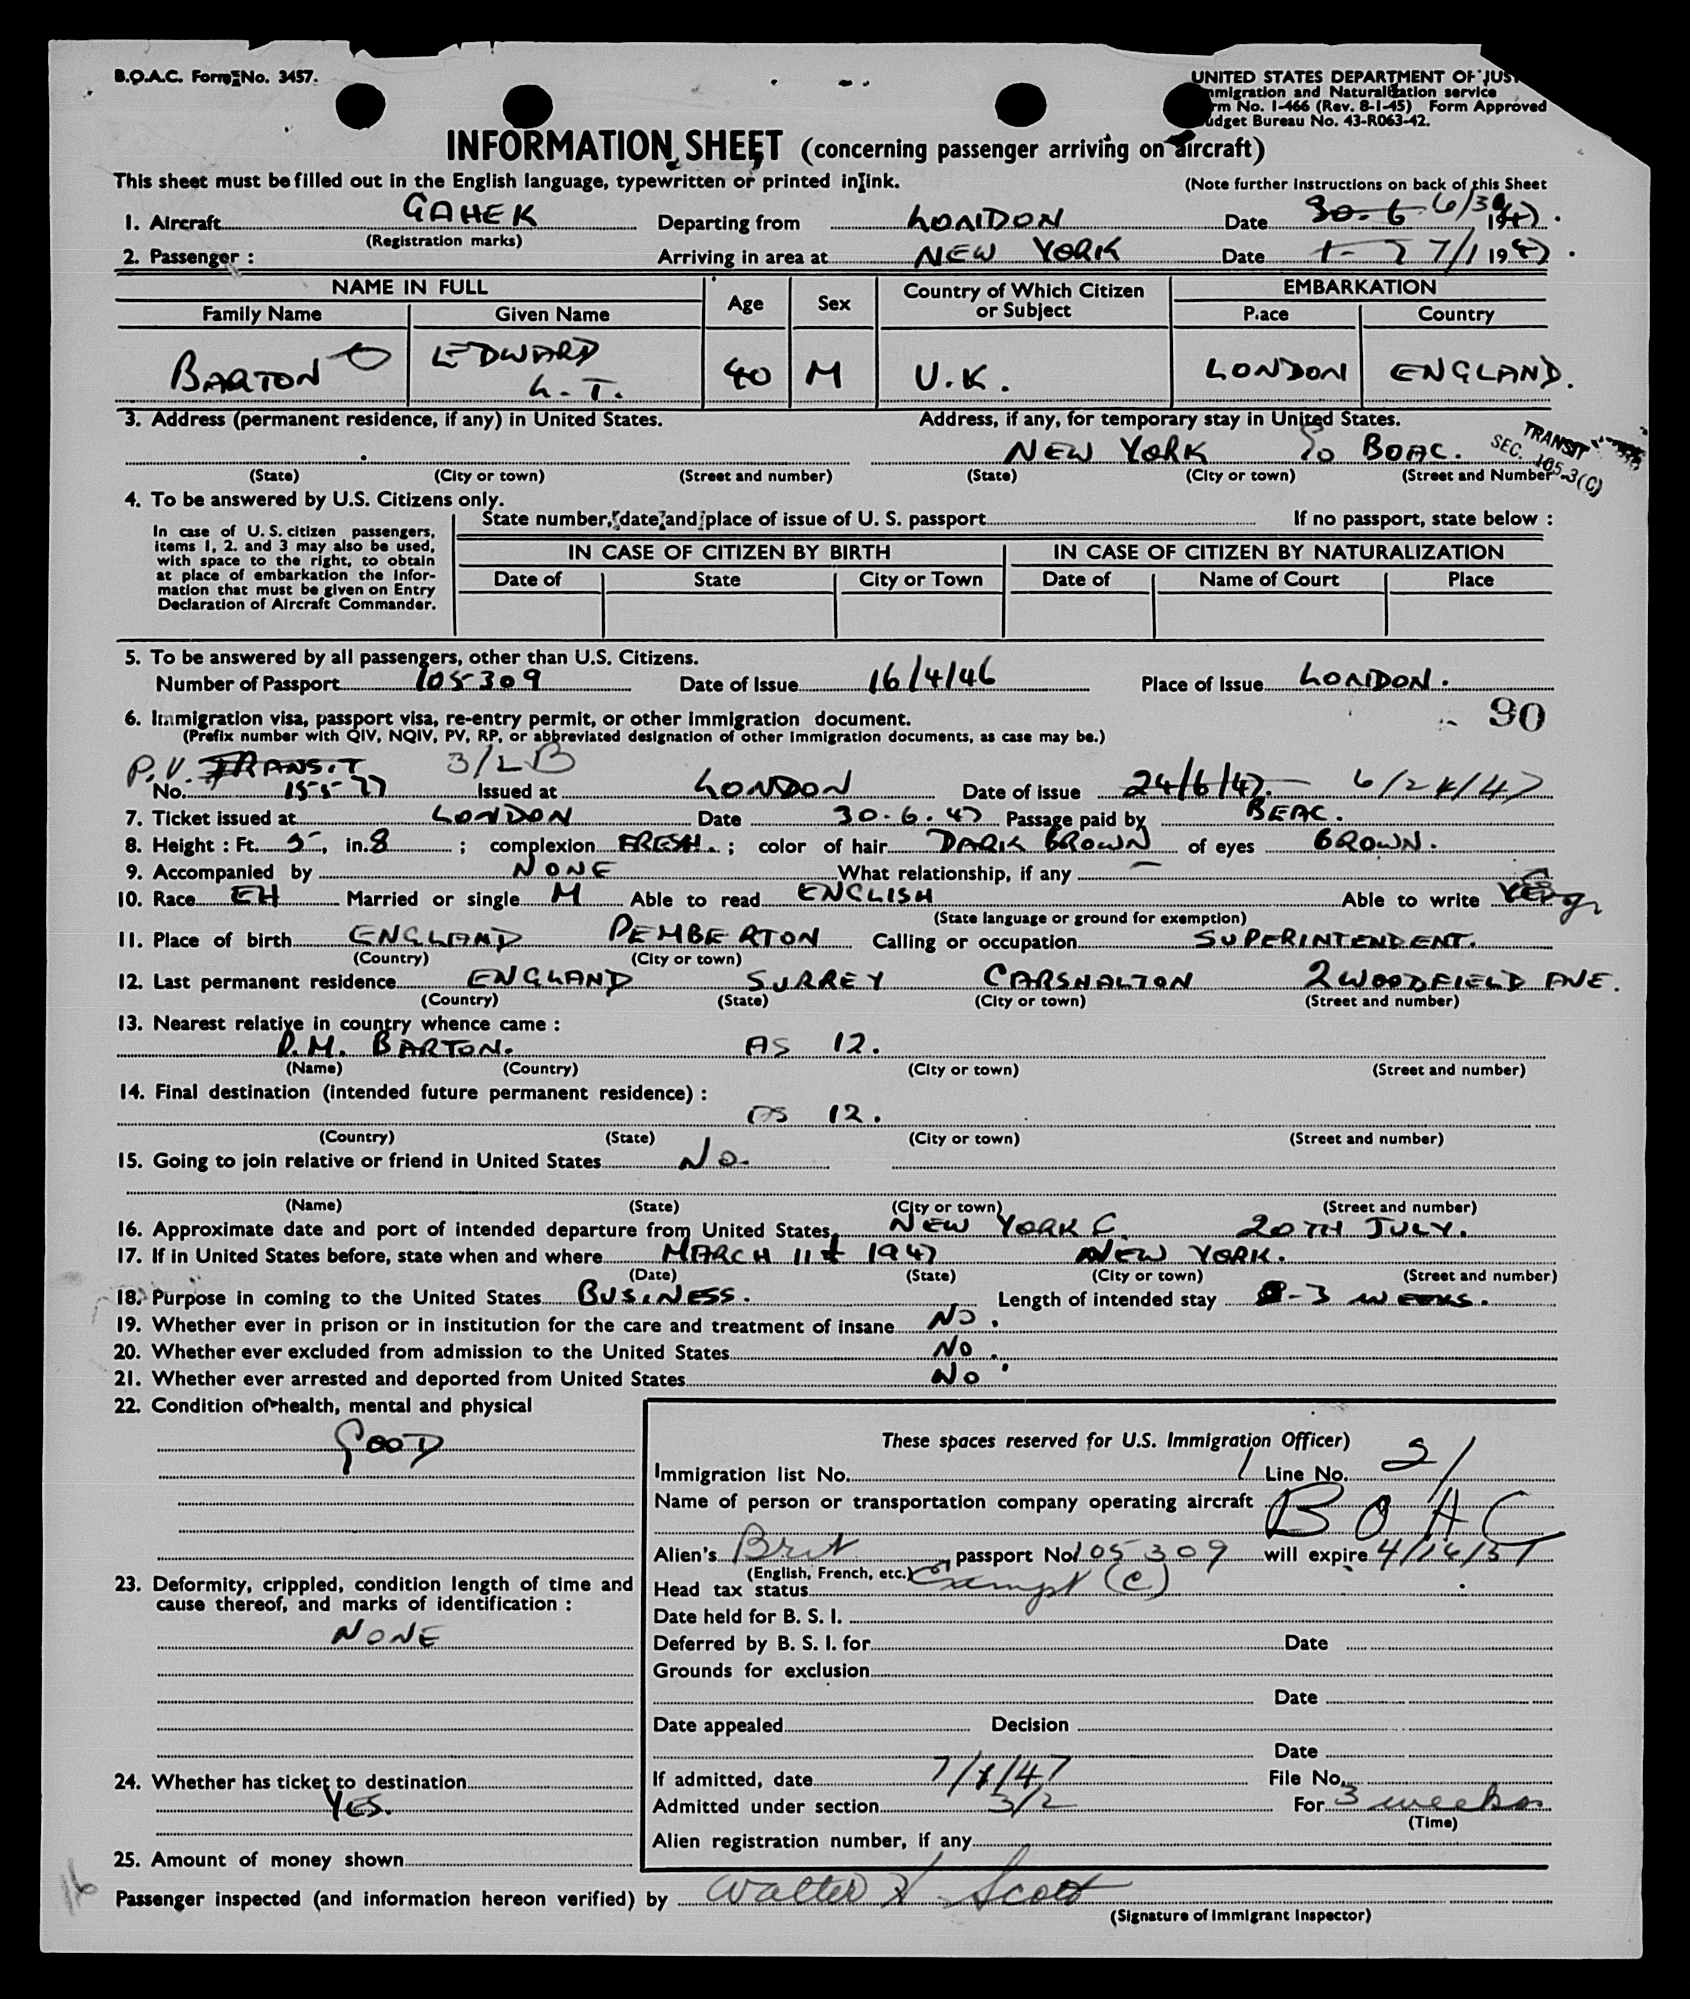 B.O.A.C. Form No. 3457.
UNITED STATES DEPARTMENT OF JUS
mmigration and Naturalization service
rm No. I-466 (Rev. 8-1-45) Form Approved
udget Bureau No. 43-R063-42.
INFORMATION SHEET (concerning passenger arriving on aircraft)
This sheet must be filled out in the English language, typewritten or printed in ink.
(Note further instructions on back of this Sheet
1. Aircraft GAHEK Departing from LONDON Date 30-6 6/30 1947.
(Registration marks)
2. Passenger : Arriving in area at NEW YORK Date 1-7 7/1 1947.
NAME IN FULL Age Sex Country of Which Citizen or Subject EMBARKATION
Family Name Given Name Place Country
BARTON EDWARD L.T. 40 M U.K. LONDON ENGLAND.
3. Address (permanent residence, if any) in United States. Address, if any, for temporary stay in United States.
NEW YORK c/o BOAC.
TRANSIT
SEC. 105-3(C)
(State) (City or town) (Street and number) (State) (City or town) (Street and Number
4. To be answered by U.S. Citizens only.
State number, date and place of issue of U. S. passport If no passport, state below :
In case of U. S. citizen passengers,
items 1, 2. and 3 may also be used,
with space to the right, to obtain
at place of embarkation the infor-
mation that must be given on Entry
Declaration of Aircraft Commander.
IN CASE OF CITIZEN BY BIRTH IN CASE OF CITIZEN BY NATURALIZATION
Date of State City or Town Date of Name of Court Place
5. To be answered by all passengers, other than U.S. Citizens.
Number of Passport 105309 Date of Issue 16/4/46 Place of Issue LONDON.
90
6. Immigration visa, passport visa, re-entry permit, or other immigration document.
(Prefix number with QIV, NQIV, PV, RP, or abbreviated designation of other immigration documents, as case may be.)
P.V. TRANSIT 3/2 B
No. 15577 Issued at LONDON Date of issue 24/6/47. 6/24/47
7. Ticket issued at LONDON Date 30.6.47 Passage paid by BEAC.
8. Height : Ft. 5, in. 8 ; complexion FRESH. ; color of hair DARK BROWN of eyes BROWN.
9. Accompanied by NONE What relationship, if any —
10. Race EH Married or single M Able to read ENGLISH Able to write YES
(State language or ground for exemption)
11. Place of birth ENGLAND PEMBERTON Calling or occupation SUPERINTENDENT.
(Country) (City or town)
12. Last permanent residence ENGLAND SURREY CARSHALTON 2 WOODFIELD AVE.
(Country) (State) (City or town) (Street and number)
13. Nearest relative in country whence came :
D.M. BARTON. AS 12.
(Name) (Country) (City or town) (Street and number)
14. Final destination (intended future permanent residence) :
AS 12.
(Country) (State) (City or town) (Street and number)
15. Going to join relative or friend in United States No.
(Name) (State) (City or town) (Street and number)
16. Approximate date and port of intended departure from United States NEW YORK C. 20TH JULY.
17. If in United States before, state when and where MARCH 11th 1947 NEW YORK.
(Date) (State) (City or town) (Street and number)
18. Purpose in coming to the United States BUSINESS. Length of intended stay -3 WEEKS.
19. Whether ever in prison or in institution for the care and treatment of insane NO.
20. Whether ever excluded from admission to the United States NO.
21. Whether ever arrested and deported from United States NO
22. Condition of health, mental and physical
GOOD
23. Deformity, crippled, condition length of time and
cause thereof, and marks of identification :
NONE
24. Whether has ticket to destination
YES.
25. Amount of money shown
These spaces reserved for U.S. Immigration Officer)
Immigration list No. 1 Line No. 21
Name of person or transportation company operating aircraft BOAC
Alien's Brit passport No 105309 will expire 4/16/51
(English, French, etc.)
Head tax status Exempt (C)
Date held for B. S. I.
Deferred by B. S. I. for Date
Grounds for exclusion
Date
Date appealed Decision
Date
If admitted, date 7/1/47 File No.
Admitted under section 3/2 For 3 weeks
(Time)
Alien registration number, if any
16
Passenger inspected (and information hereon verified) by Walter H Scott
(Signature of Immigrant Inspector)